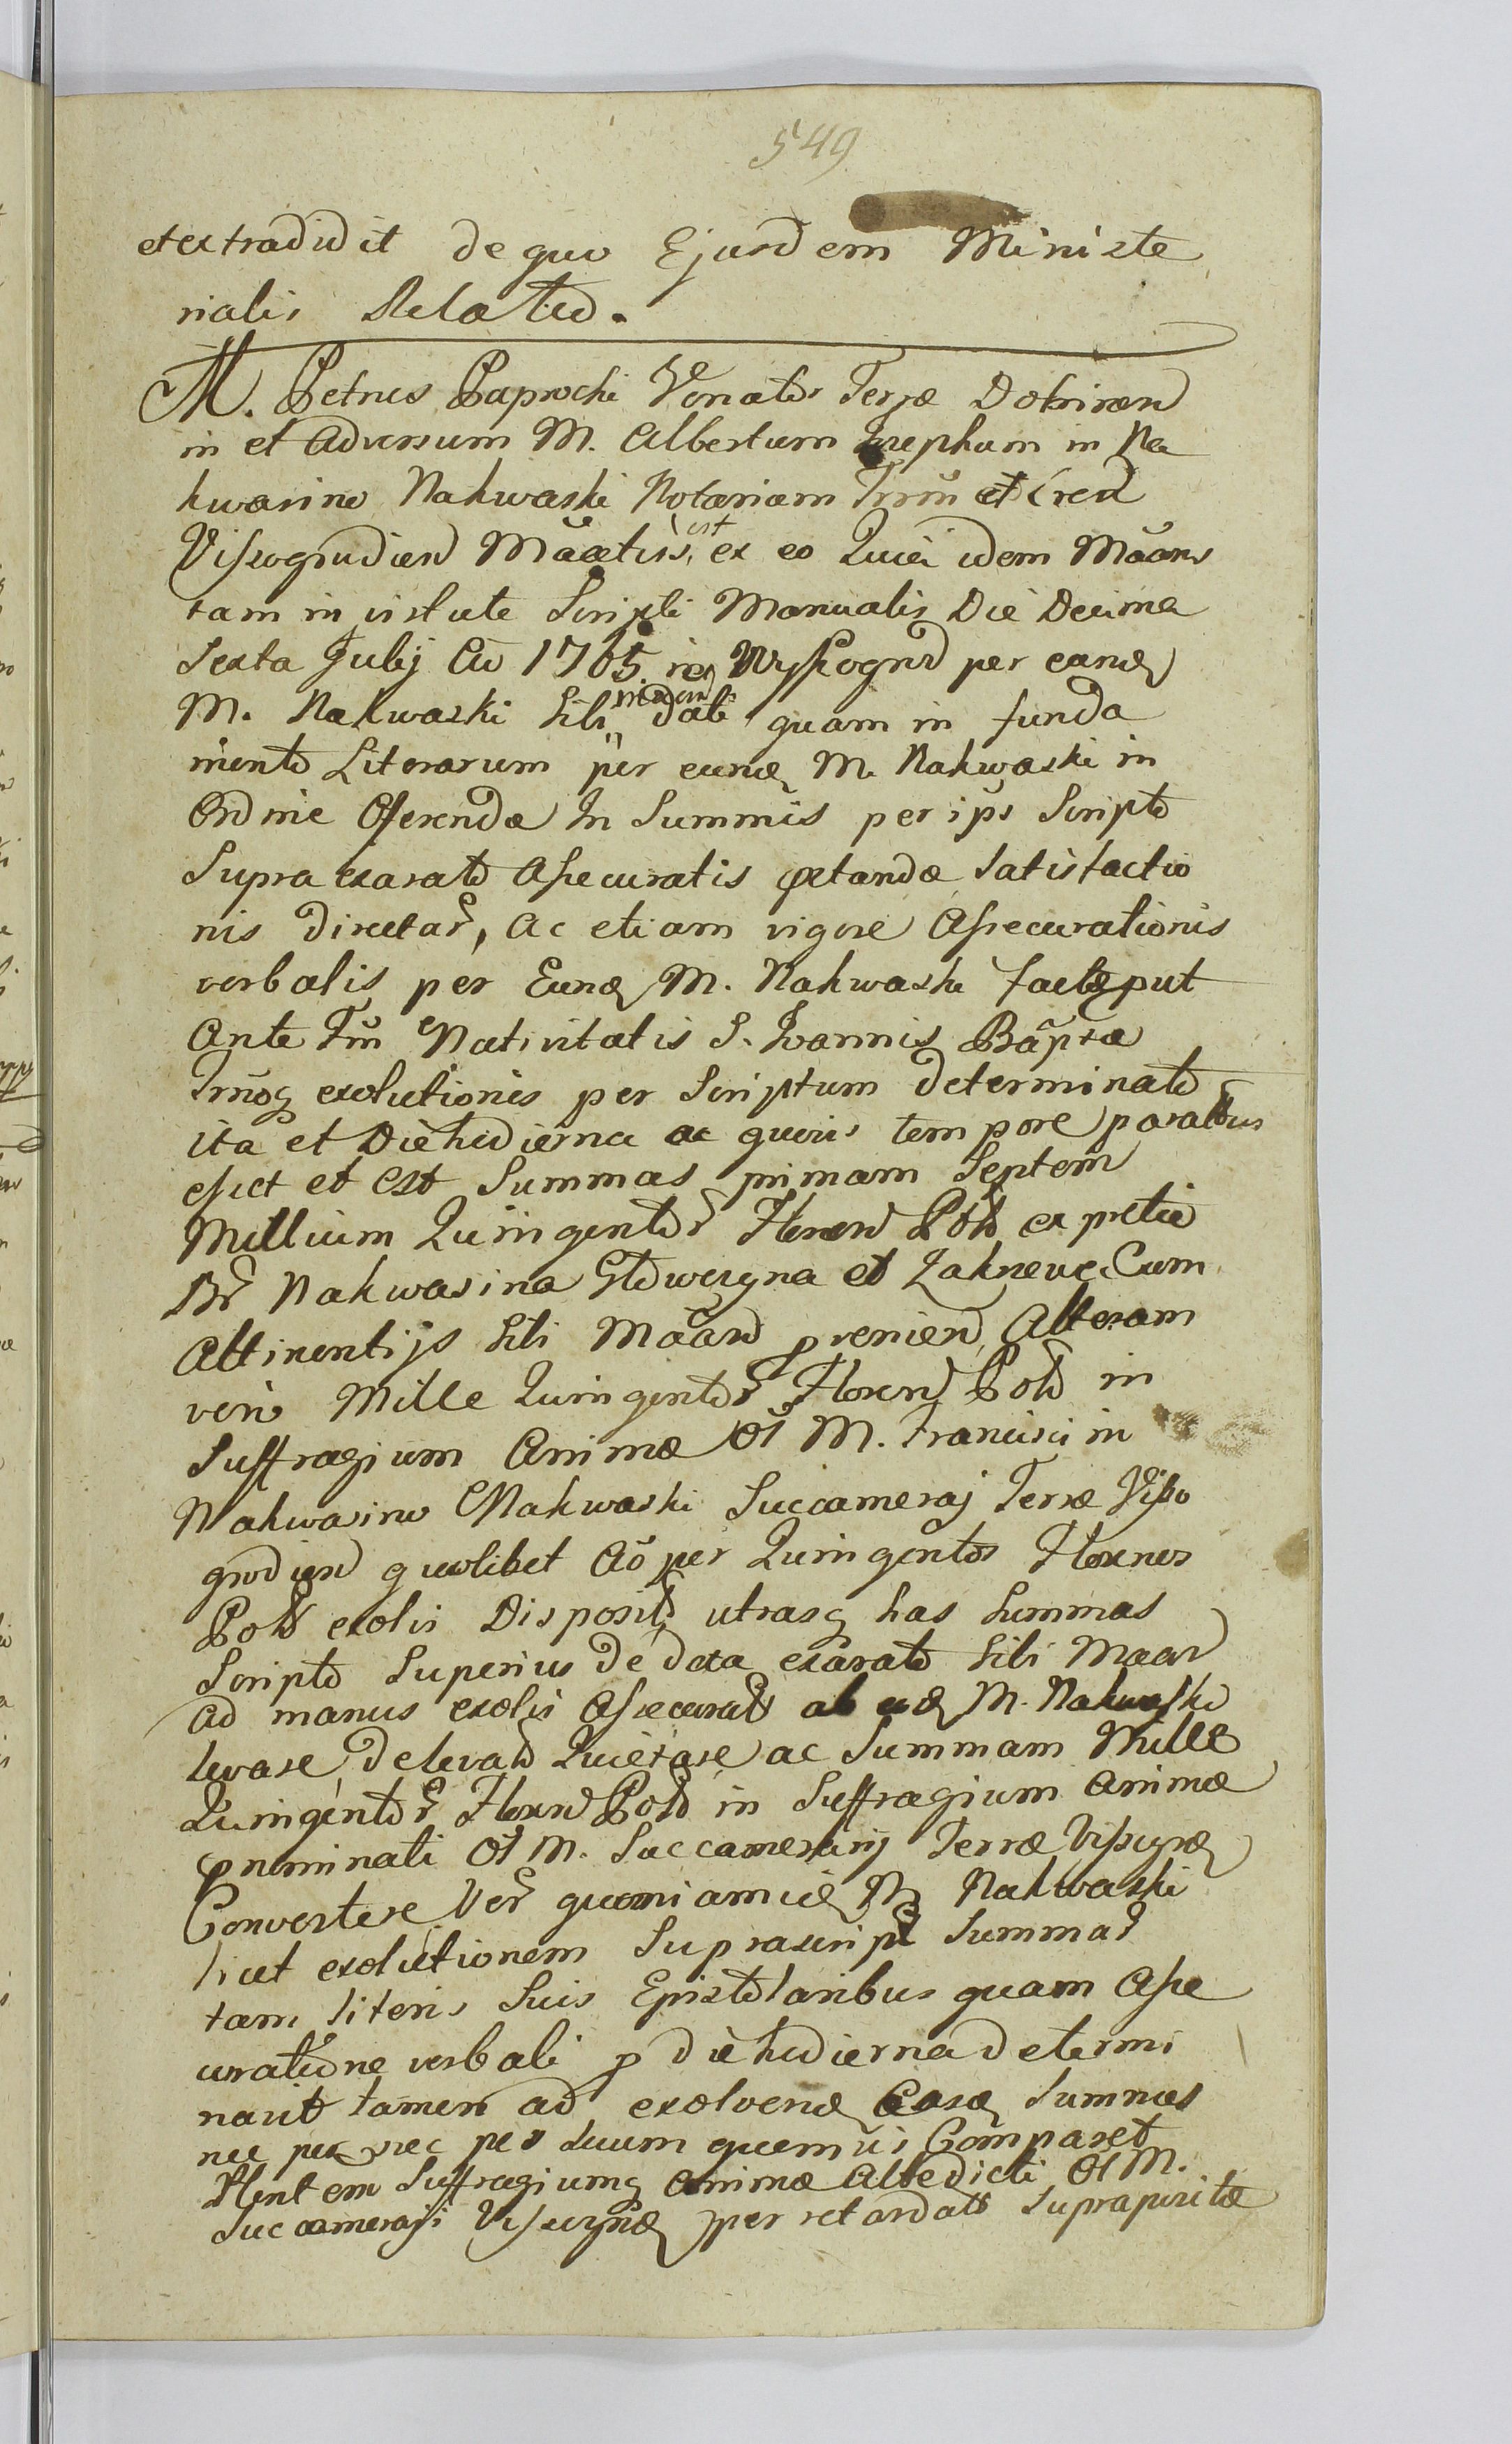 549
et extradidit de quo Ejusdem Ministe
rialis Relatio.
M. Petrus Paprocki Venator Terræ Dobrinen
in et Adversum M. Albertum Josephum in Na
kwasino Nakwaski Notarium Trrm et Cren
Vissogrudien Mãatus est, ex eo Quia idem Mãans
tam in virtute Scripti Manualis Die Decima
Sexta Julij Ao 1765. in Wyssogrod per eund
M. Nakwaski Sibi Maãn dati quam in funda
mento Literarum per eund M. Nakwaski in
Ordine Offerendæ In Summis per ips Scripto
Supra exarato Assecuratis pstandæ Satisfactio
nis directar, Ac etiam vigore Assecurationis
verbalis per Eund M. Nakwaski factæ put
Ante Frũ Nativitatis S. Joannis Bãptæ
Trnoq exolutionis per Scriptum determinato
ita et Die hodierna ac quovis tempore paratus
esset et est Summas primam Septem
Millium Quingentor Floren Pold ex pretio
Br Nakwasina Gtowczyna et Zakrzewe Cum
Attinentijs Sibi Mãan provenien, Alteram
vero Mille Quingentor Floren Pold in
Suffragium Animæ Ol M. Francisci in
Nakwasino Nakwaski Succameraj Terræ Visso
grodien quolibet Ao per Quingentos Florenos
Pold exolvi Disposit, utrasq has Summas
Scripto Superius de data exarato Sibi Maan
ad manus exolvi Assecurat ab eod M. Nakwaski
levare, de levatis Quietare ac Summam Mille
Quingentor Floren Pold in Suffragium Animæ
pnominati Ol M. Succamerarij Terræ Vissogr
Convertere Ver quoniam id M. Nakwaski
licet exolutionem Suprascript Summar
tam literis Suis Epistolaribus quam Asse
curatione verbali p die hodierna determi
navit tamen ad exolvend Easd Summas
nec per se nec per Suum quemvis Comparet
Suffragiumq Animæ Antedicti Ol M.
Succameraji per retardat Suprascriptæ